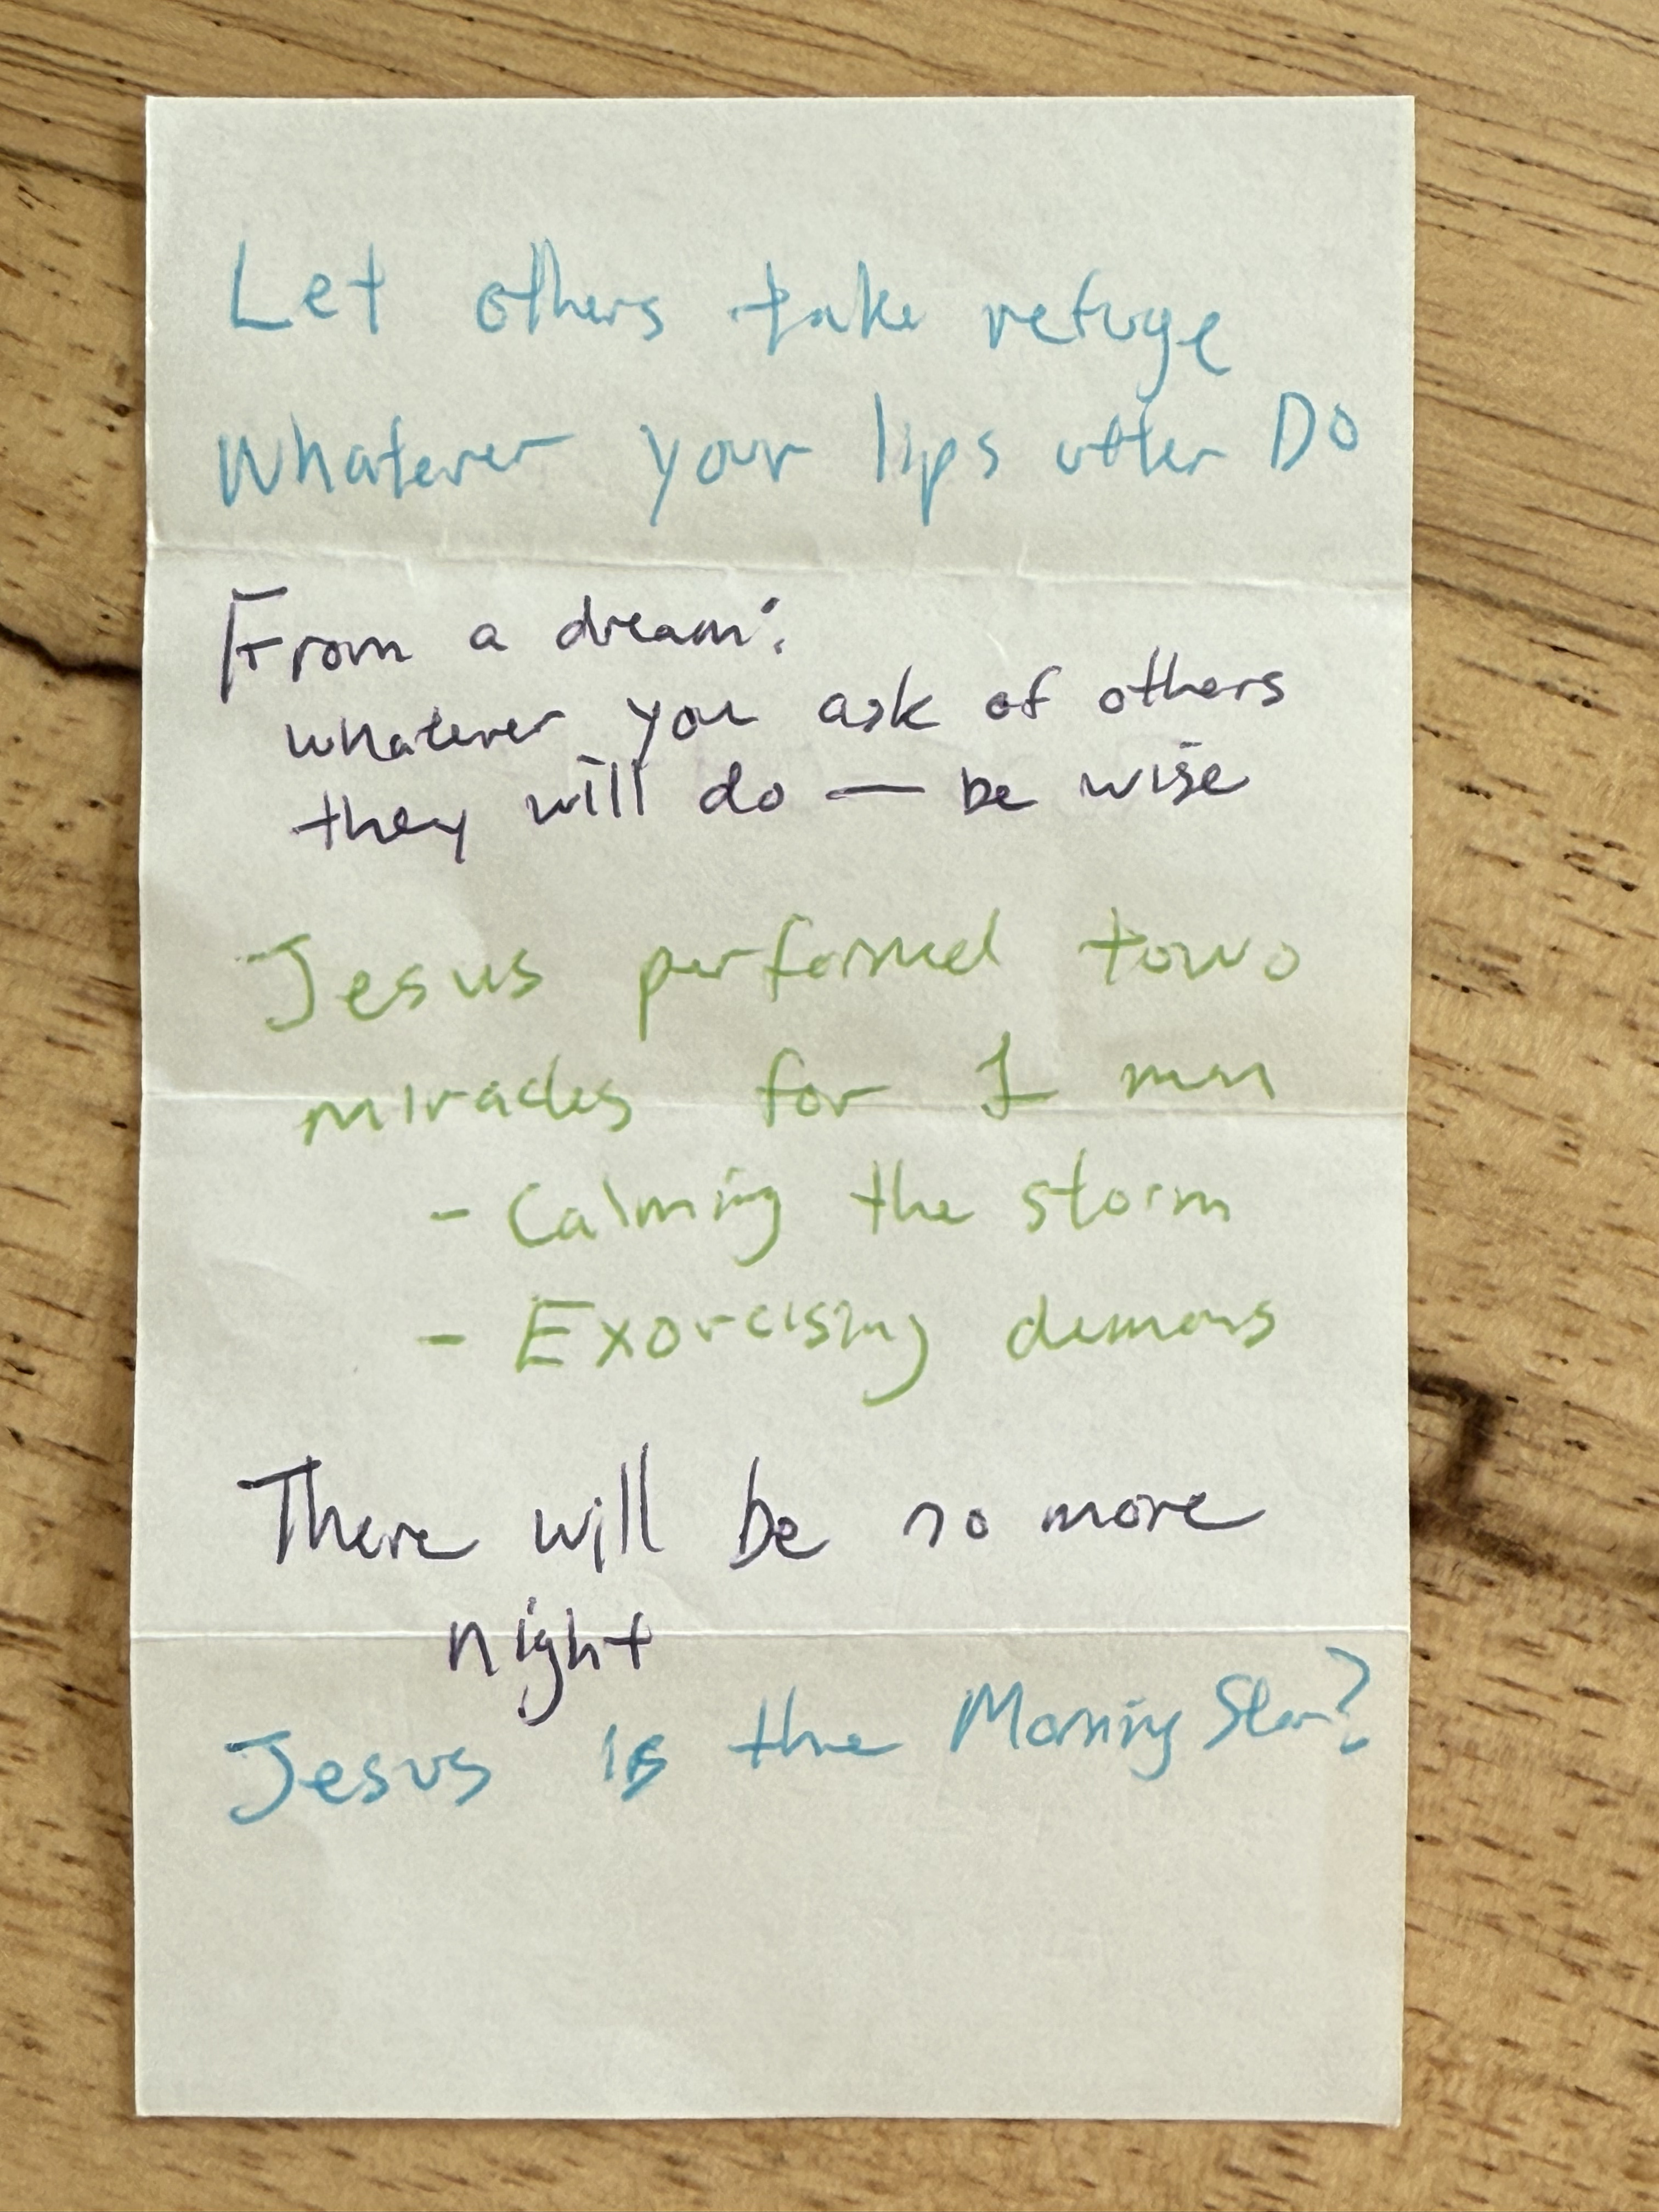 Let others take refuge
Whatever your lips utter DO
From a dream:
whatever you ask of others
they will do — be wise
Jesus performed towo
miracles for 1 man
- Calming the storm
- Exorcising demons
There will be no more
night
Jesus is the Morning Star?